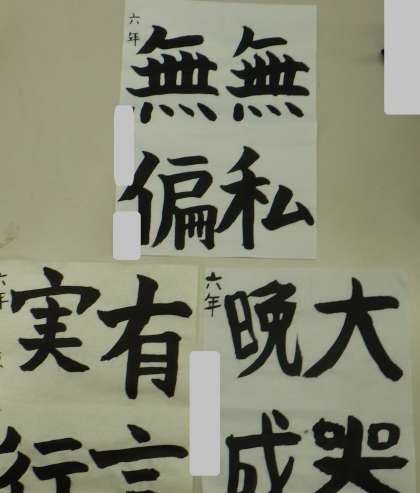 無私
無偏
六年
大器
晩成
六年
有言
実行
六年